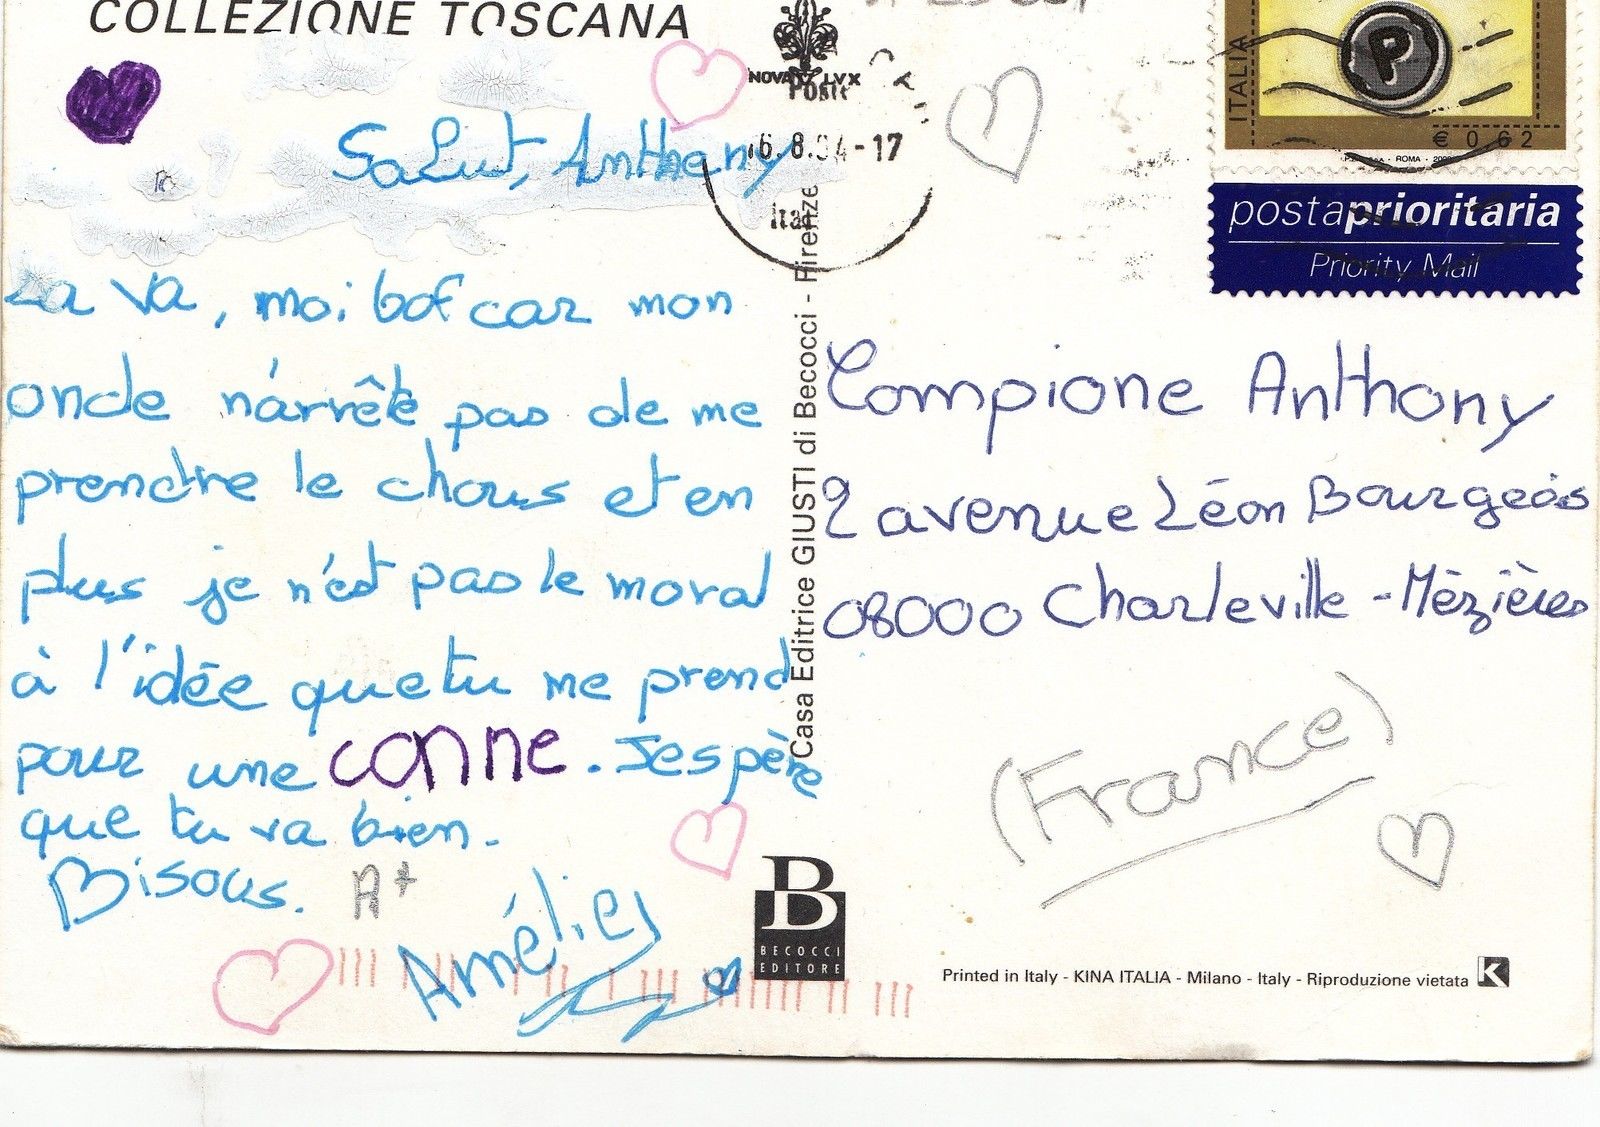 COLLEZIONE TOSCANA
Salut, Anthony
ça va, moi bof car mon
oncle n'arrête pas de me
prendre le chous et en
plus je n'est pas le moral
à l'idée que tu me prend
pour une conne. J'espère
que tu va bien.
Bisous. A+
Amélie
NOVA LVX
Poste
16.8.04-17
Casa Editrice GIUSTI di Becocci - Firenze
B
BECOCCI
EDITORE
ITALIA
P
€ 0,62
ROMA
postaprioritaria
Priority Mail
Compione Anthony
2 avenue Léon Bourgeois
08000 Charleville-Mézières
(France)
Printed in Italy - KINA ITALIA - Milano - Italy - Riproduzione vietata K